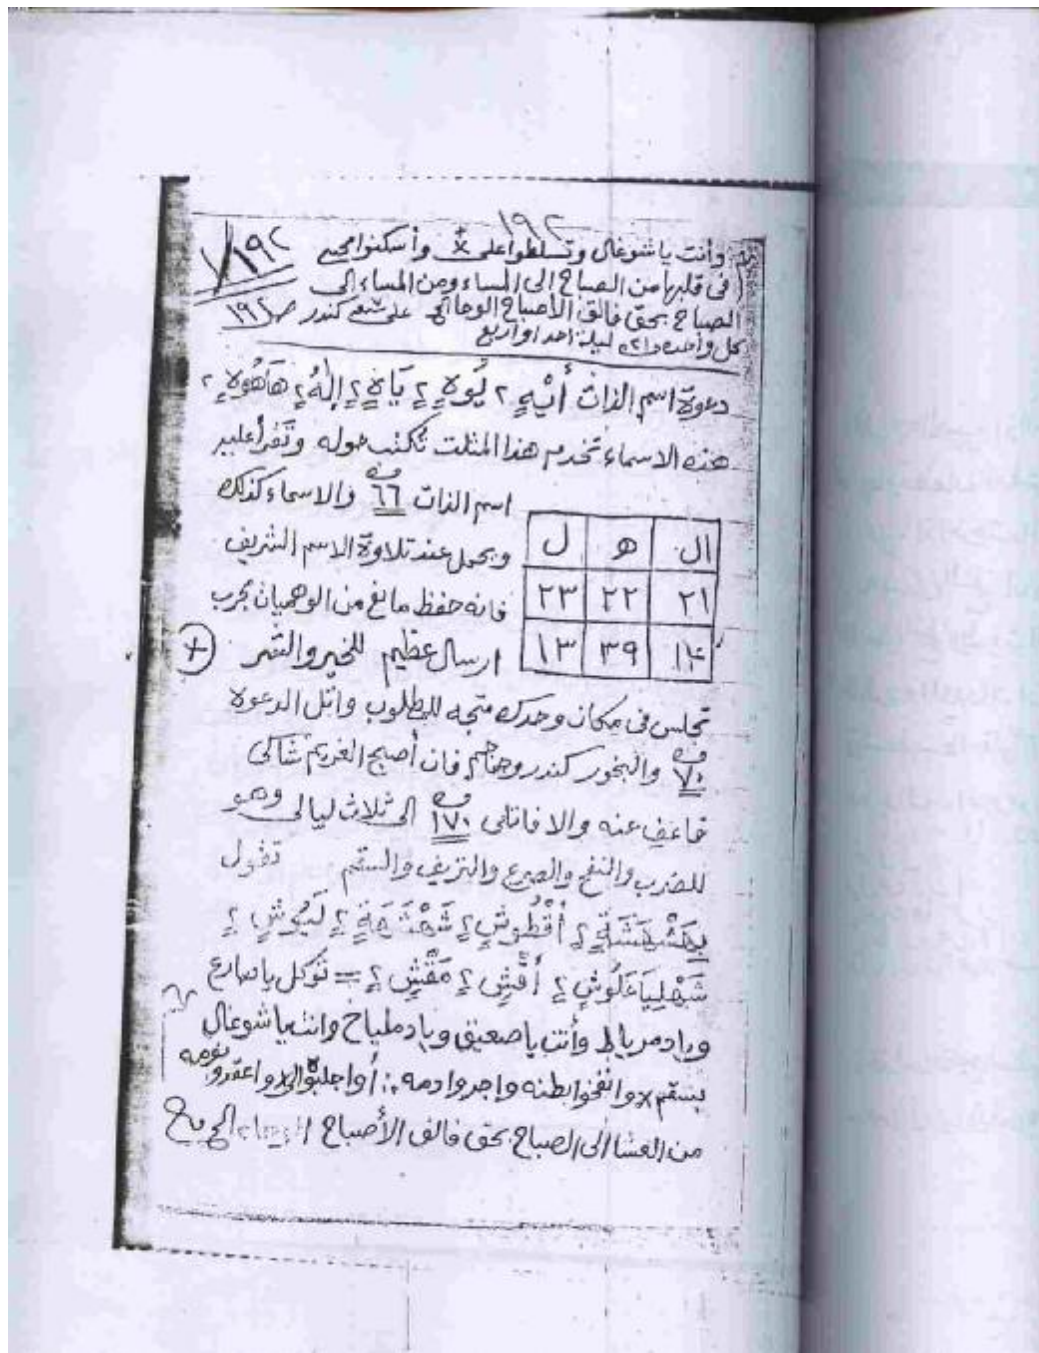 ١٩٢
وأنت يا شوغال وتسلطوا على × وأسكنوا محبتي
١٩٢
فى قلبها من الصباح الى المساء ومن المساء إلى
الصباح بحق فالق الأصباح الوحا على شمع كندر ص ١٩٢
كل واحده ليلة احد او اربع
دعوة اسم الذات أَيْهٍ ٢ يُوهٍ ٢ يَاهٍ ٢ إِلٰهُ ٢ هَاهُوهٍ ٢
هذه الاسماء تخدم هذا المثلث تكتب حوله وتقرأ عليه
اسم الذات ٦٦ والاسماء كذلك
ال ه ل
ويحمل عند تلاوة الاسم الشريف
٢١ ٢٢ ٢٣
فانه حفظ مانع من الوهميان مجرب
٣٩ ١٣
ارسال عظيم للخير والشر
تجلس فى مكان وحدك متجه للمطلوب واتل الدعوة
٧٠ والبخور كندر وهنا فان أصبح الغريم شاكى
فاعف عنه والا فاتلى ١٧٠ الى ثلاث ليالى وهو
للضرب والنفخ والصرع والنزيف والسقم تقول
بِهَشْهَشَةٍ ٢ أَقْطُوشٍ ٢ شَهْشَهَةٍ ٢ لَيُوشٍ ٢
شَهْلِيَاعَلُوشٍ ٢ أَقَّشٍ ٢ مَقَّشٍ ٢ = توكل يا صارع
ويا دمرياط وأنت يا صعيق ويا دملياخ وانت يا شوغال
بسقم × وانفخوا بطنه واجروا دمه ∴ أو اجلبوا الى × واعقدوا نومه
من العشا الى الصباح بحق فالق الأصباح